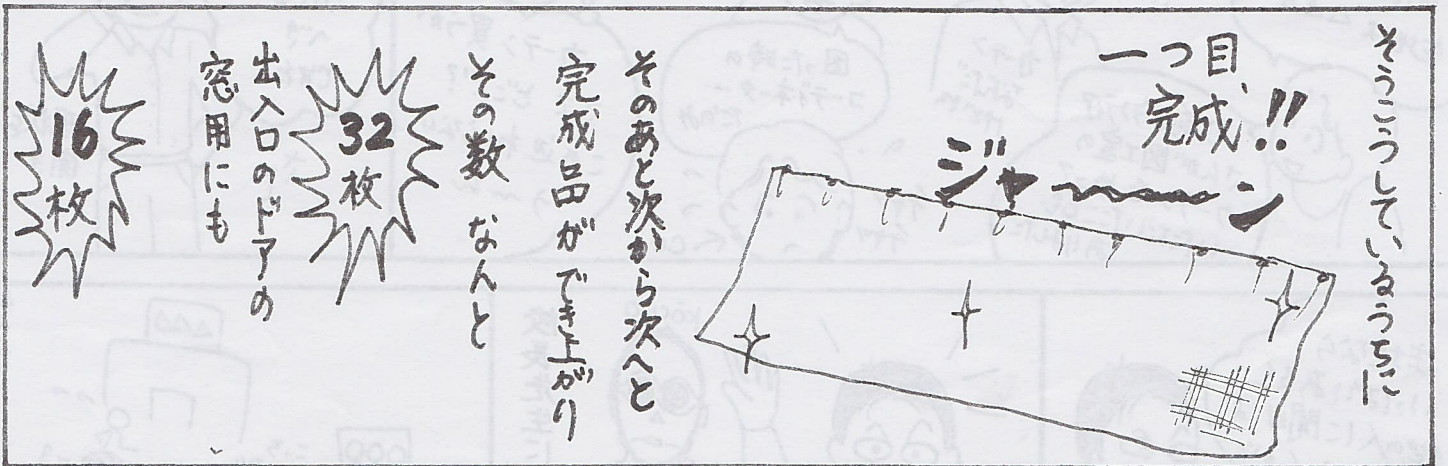 そうこうしているうちに
一つ目、
完成!!
ジャーーーン
そのあと次から次へと
完成品ができ上がり
その数 なんと
32
枚
出入口のドアの
窓用にも
16
枚